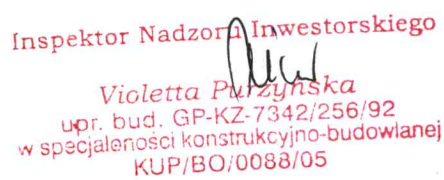 Inspektor Nadzoru Inwestorskiego
Violetta Purzyńska
upr. bud. GP-KZ-7342/256/92
w specjalności konstrukcyjno-budowlanej
KUP/BO/0088/05